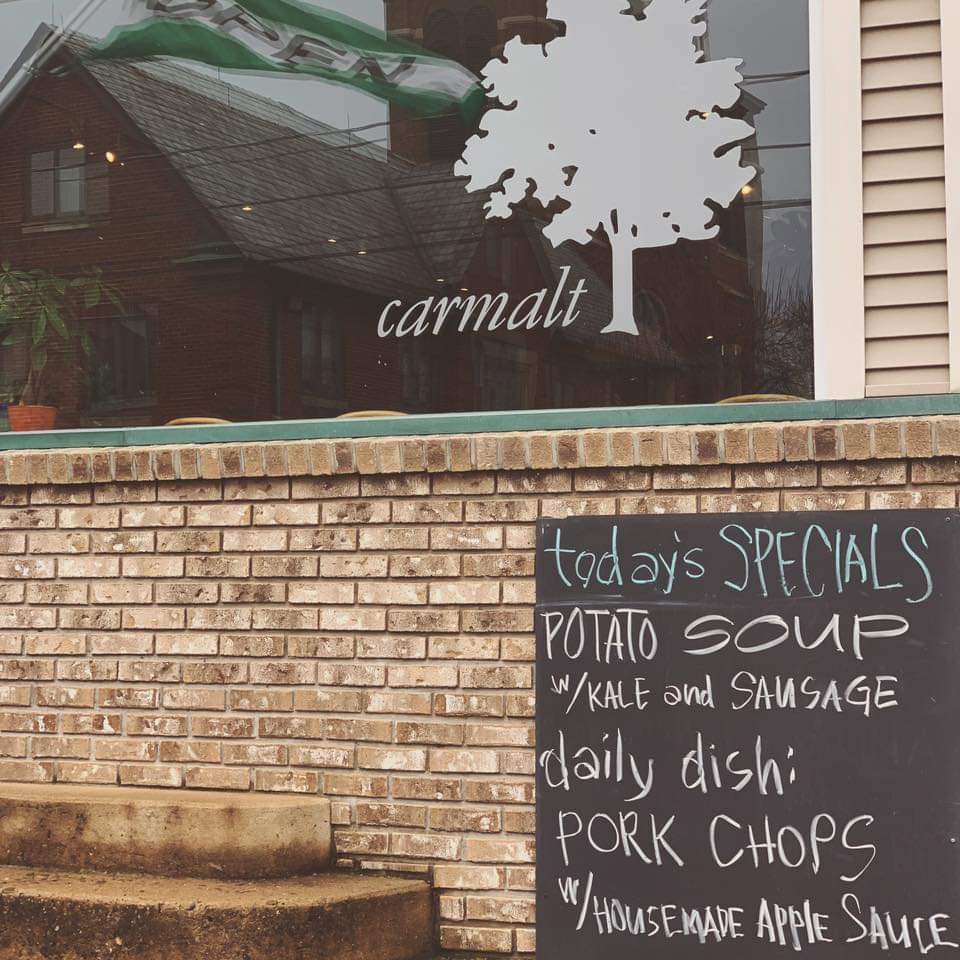 OPEN
carmalt
today's SPECIALS
POTATO SOUP
w/KALE and SAUSAGE
daily dish:
PORK CHOPS
w/HOUSEMADE APPlE SAUCE